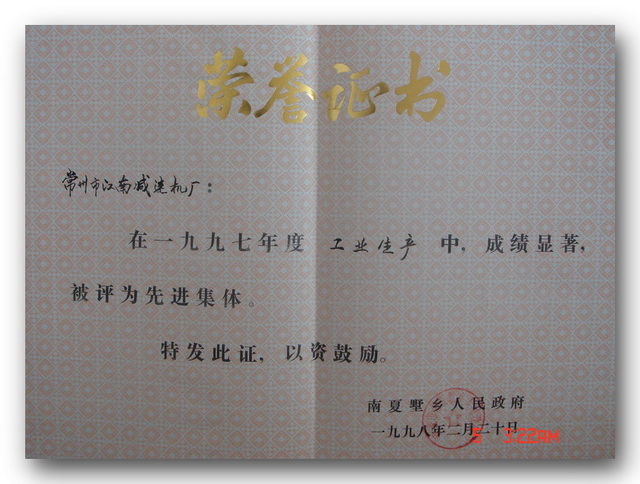 荣誉证书
常州市江南减速机厂：
在一九九七年度 工业生产 中，成绩显著，
被评为先进集体。
特发此证，以资鼓励。
南夏墅乡人民政府
一九九八年二月二十日
3:22AM